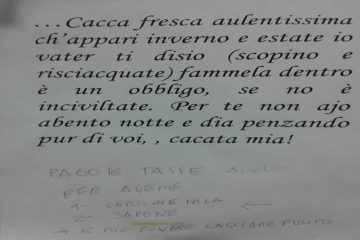 ...Cacca fresca aulentissima
ch'appari inverno e estate io
vater ti disio (scopino e
risciacquate) fammela dentro
è un obbligo, se no è
inciviltate. Per te non ajo
abento notte e dia penzando
pur di voi, , cacata mia!
PAGO LE TASSE ANCHE
PER AVERE
1- CARTA IGIENICA
2- SAPONE
→ È MIO DOVERE LASCIARE PULITO